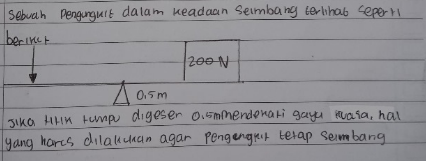 Sebuah Pengungkit dalam keadaan Seimbang terlihat Seperti
berikut
200 N
0,5m
Jika titik tumpu digeser 0,5m mendekati gaya kuasa, hal
yang harus dilakukan agar Pengengkit tetap Seimbang